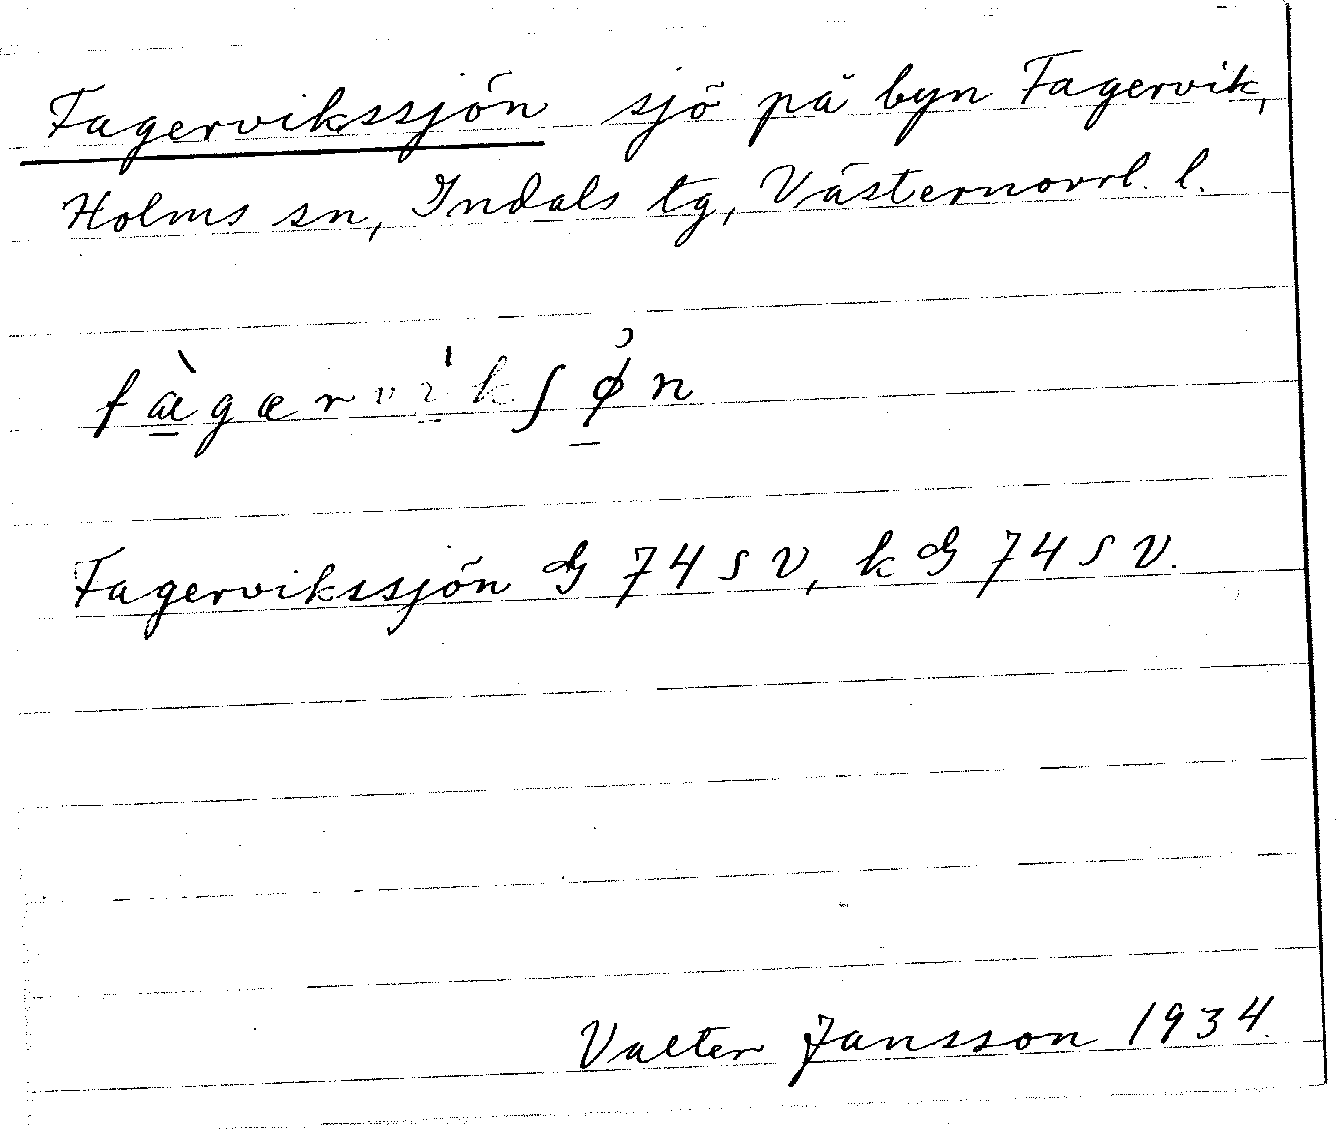 Fagervikssjön sjö på byn Fagervik,
Holms sn, Indals tg, Västernorrl. l.
fæ̀gærvíkʃøn
Fagervikssjön G 74 S V, k G 74 S V.
Valter Jansson 1934.